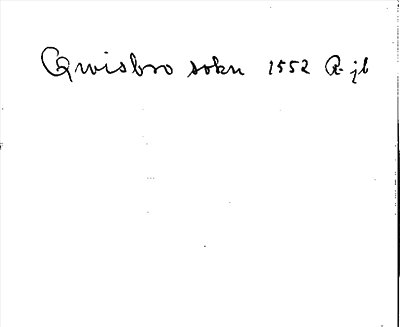 Qwisbro sokn 1552 R. jb